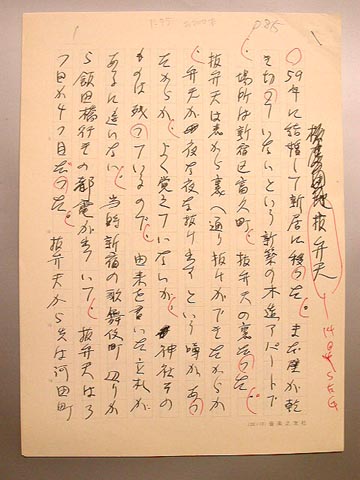 抜弁天
59年に結婚して新居に移った。まだ壁が乾
き切っていないという新築の木造アパートで
、場所は新宿区富久町。抜弁天の裏だった。
抜弁天は表から裏へ通り抜けができるからか
、弁天が夜な夜な抜け出すという噂があっ
たからか、よく覚えていないが、神社その
ものは残っているので、由来を書いた立札が
あるに違いない。当時新宿の歌舞伎町辺りか
ら飯田橋行きの都電が出ていて、抜弁天は3
つ目か4つ目だった。抜弁天から先は河田町
音楽之友社